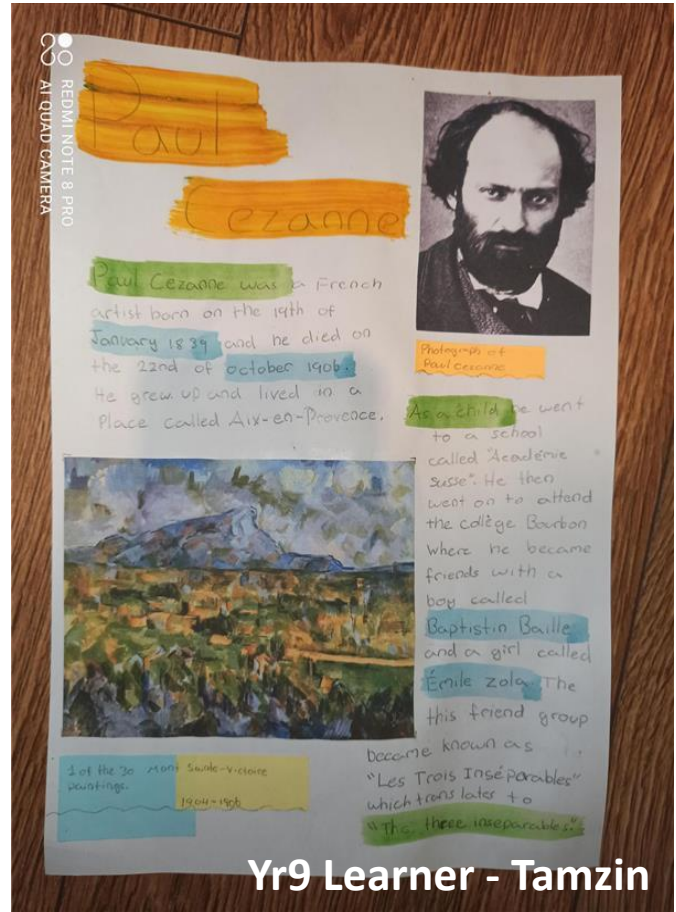 REDMI NOTE 8 PRO
AI QUAD CAMERA
Paul
Cezanne
Paul Cezanne was a French
artist born on the 19th of
January 1839 and he died on
the 22nd of october 1906.
He grew up and lived in a
Place called Aix-en-Provence.
Photograph of
Paul cezanne
As a child he went
to a school
called "Académie
susse". He then
went on to attend
the collège Bourbon
where he became
friends with a
boy called
Baptistin Baille
and a girl called
Émile zola. The
this friend group
became known as
"Les Trois Inséparables"
which translates to
"The three inseparables."
1 of the 30 Mont Sainte-Victoire
paintings.
1904-1906
Yr9 Learner - Tamzin